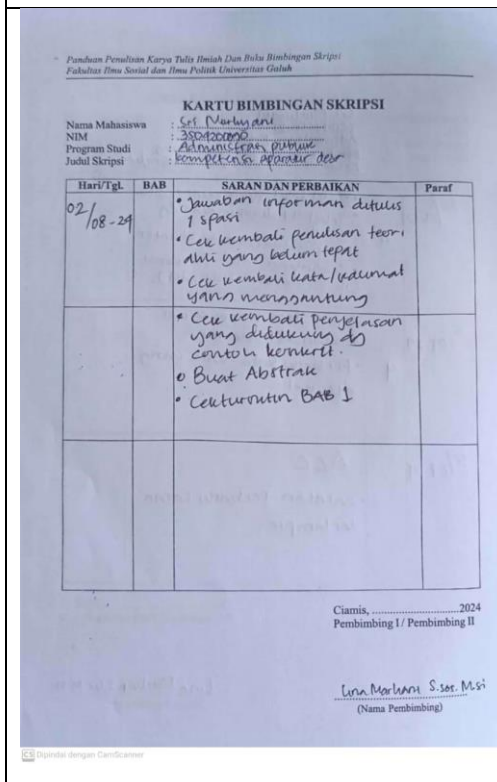 Panduan Penulisan Karya Tulis Ilmiah Dan Buku Bimbingan Skripsi
Fakultas Ilmu Sosial dan Ilmu Politik Universitas Galuh
KARTU BIMBINGAN SKRIPSI
Nama Mahasiswa : Sri Marlyani
NIM :
Program Studi : Administrasi publik
Judul Skripsi : kompetensi aparatur desa
Hari/Tgl. BAB SARAN DAN PERBAIKAN Paraf
02/08-24
• Jawaban informan ditulis
1 spasi
• Cek kembali penulisan teori
ahli yang belum tepat
• Cek kembali kata/kalimat
yang menggantung
• Cek kembali penjelasan
yang didukung dg
contoh konkrit.
• Buat Abstrak
• Cek turnitin BAB 1
Ciamis, ..............................2024
Pembimbing I / Pembimbing II
Lina Marliani S.sos. M.si
(Nama Pembimbing)
CS Dipindai dengan CamScanner